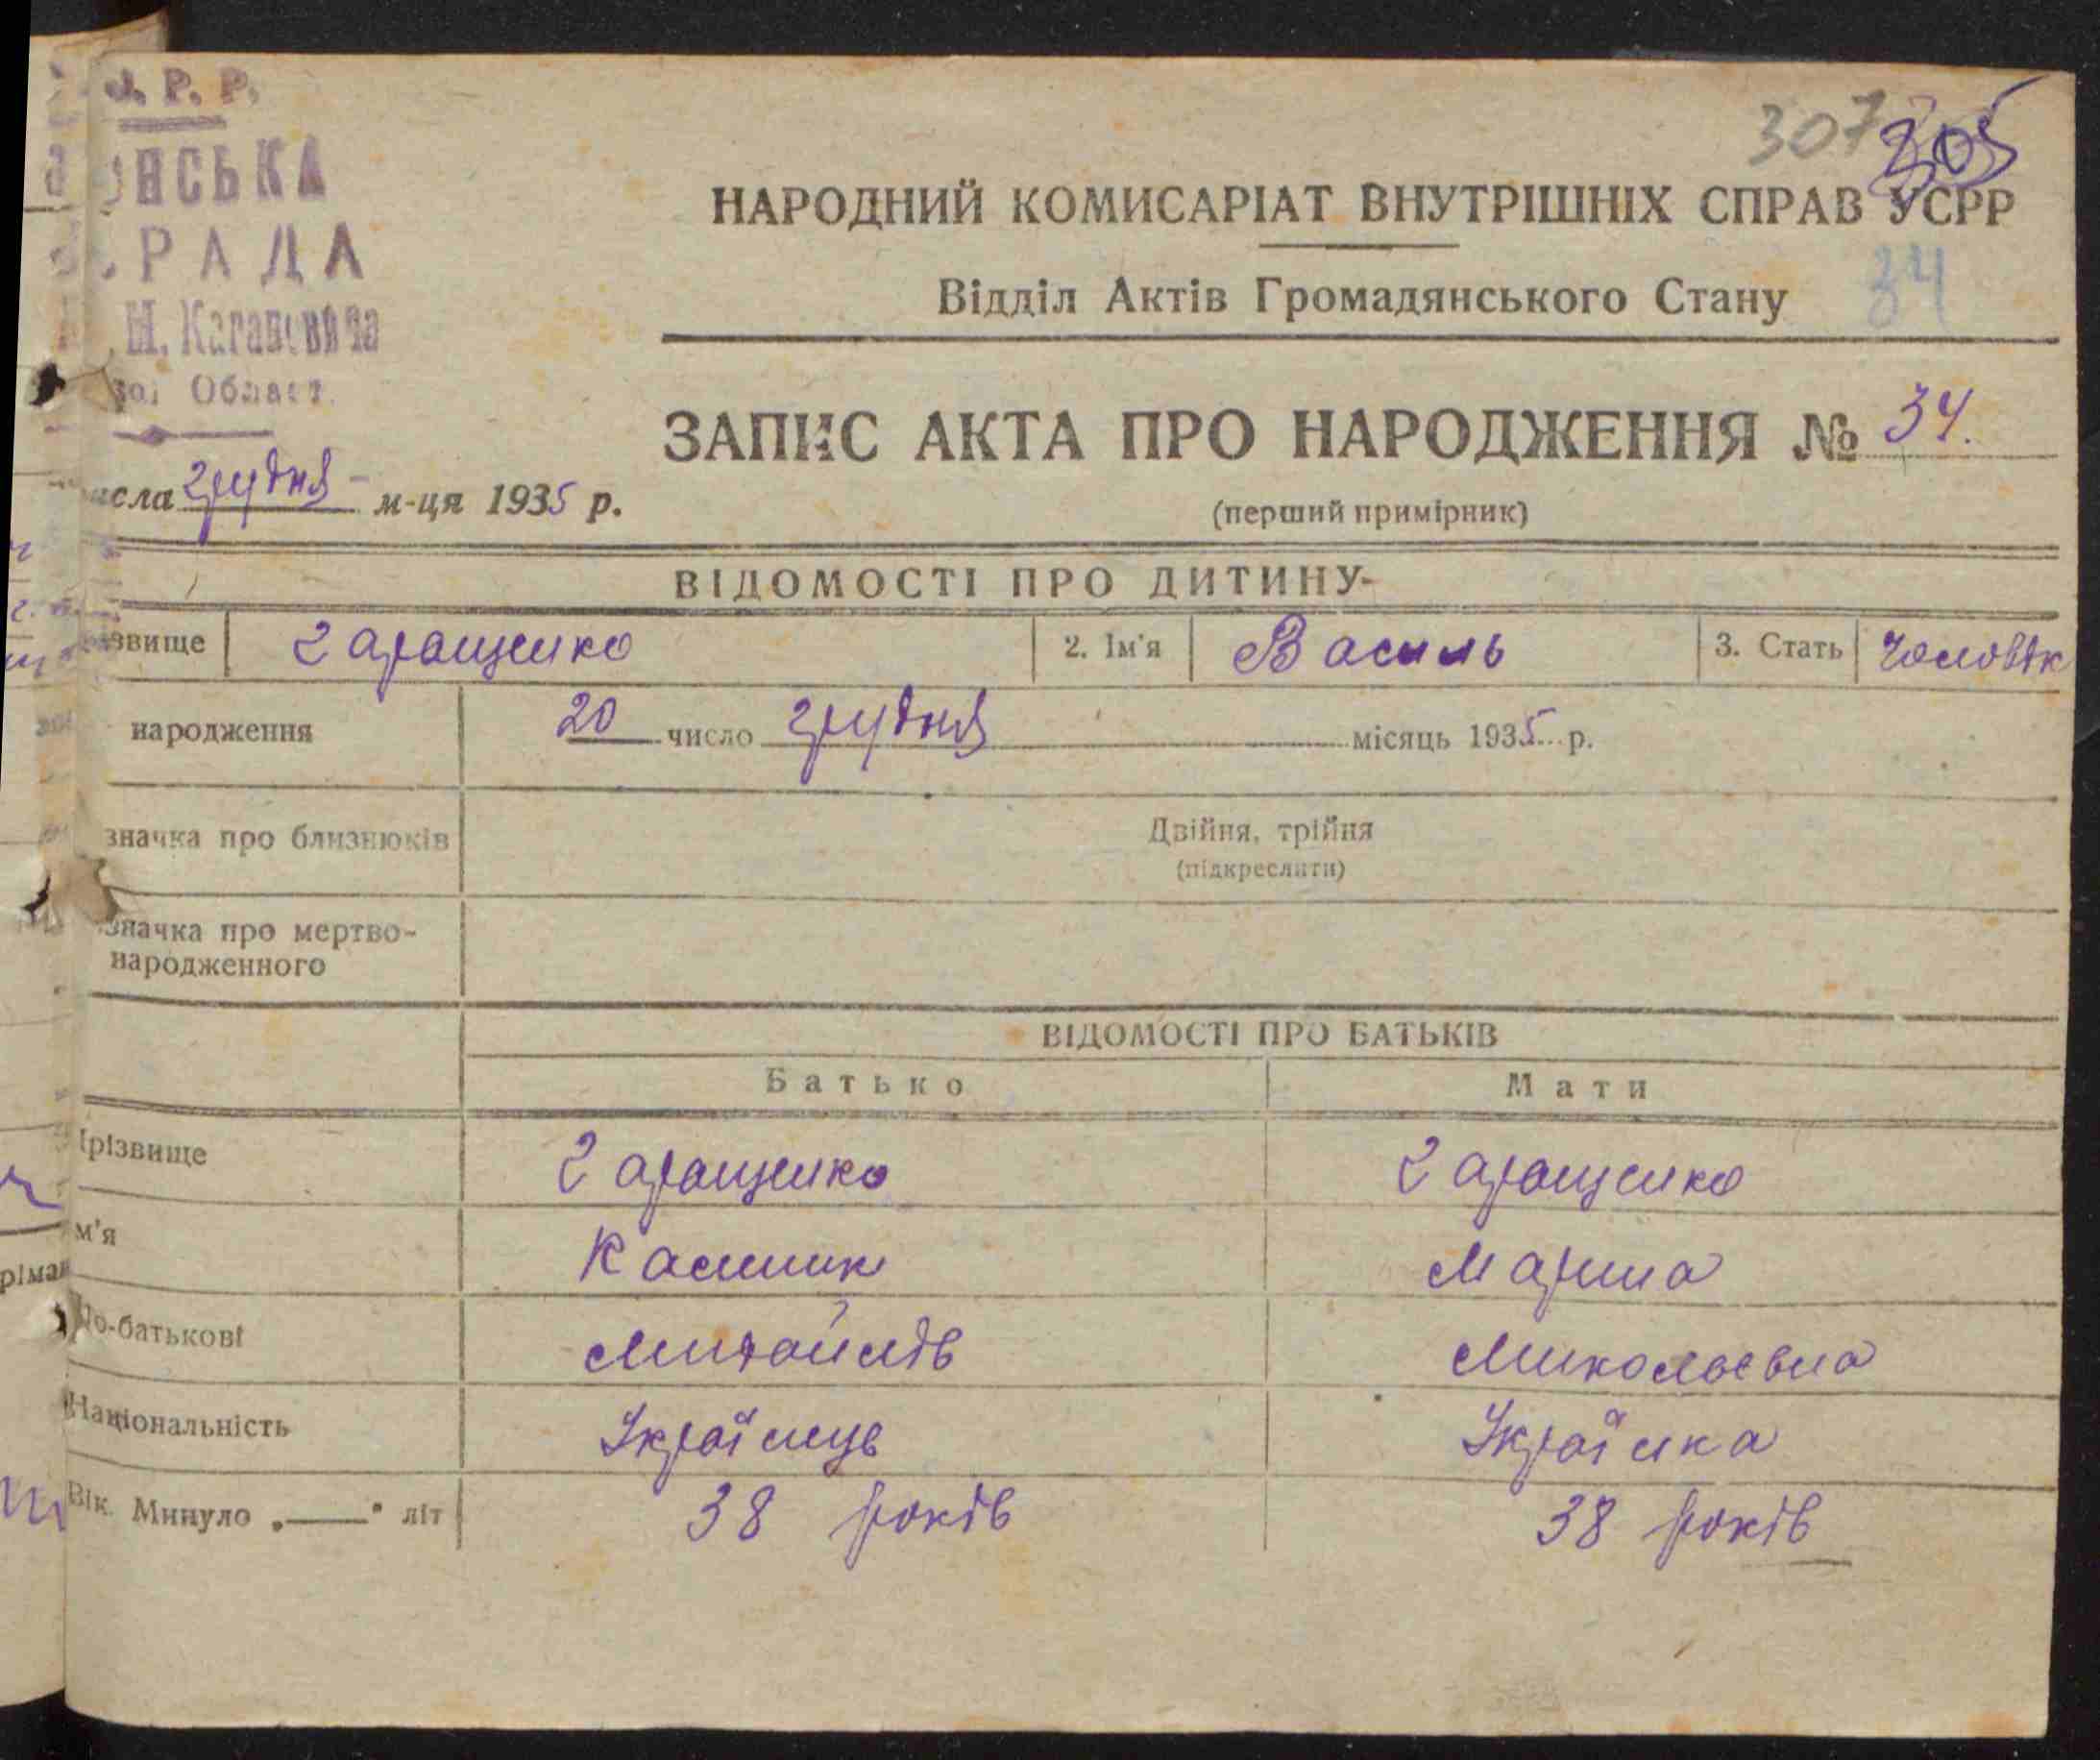 Р. Р.
НСЬКА
РАДА
М. Кагановича
Област.
307 305
НАРОДНИЙ КОМИСАРІАТ ВНУТРІШНІХ СПРАВ УСРР
Відділ Актів Громадянського Стану 34
ЗАПИС АКТА ПРО НАРОДЖЕННЯ № 34.
сла грудня м-ця 1935 р.
(перший примірник)
ВІДОМОСТІ ПРО ДИТИНУ
звище Гаращенко 2. Ім'я Василь 3. Стать Чоловік
народження 20 число грудня місяць 1935 р.
значка про близнюків Двійня, трійня
(підкреслити)
значка про мертво-
народженного
ВІДОМОСТІ ПРО БАТЬКІВ
Батько Мати
різвище Гаращенко Гаращенко
м'я Калиник Марина
По-батькові Михайлів Микольевна
Національність Українць Українка
Вік. Минуло „—" літ 38 років 38 років